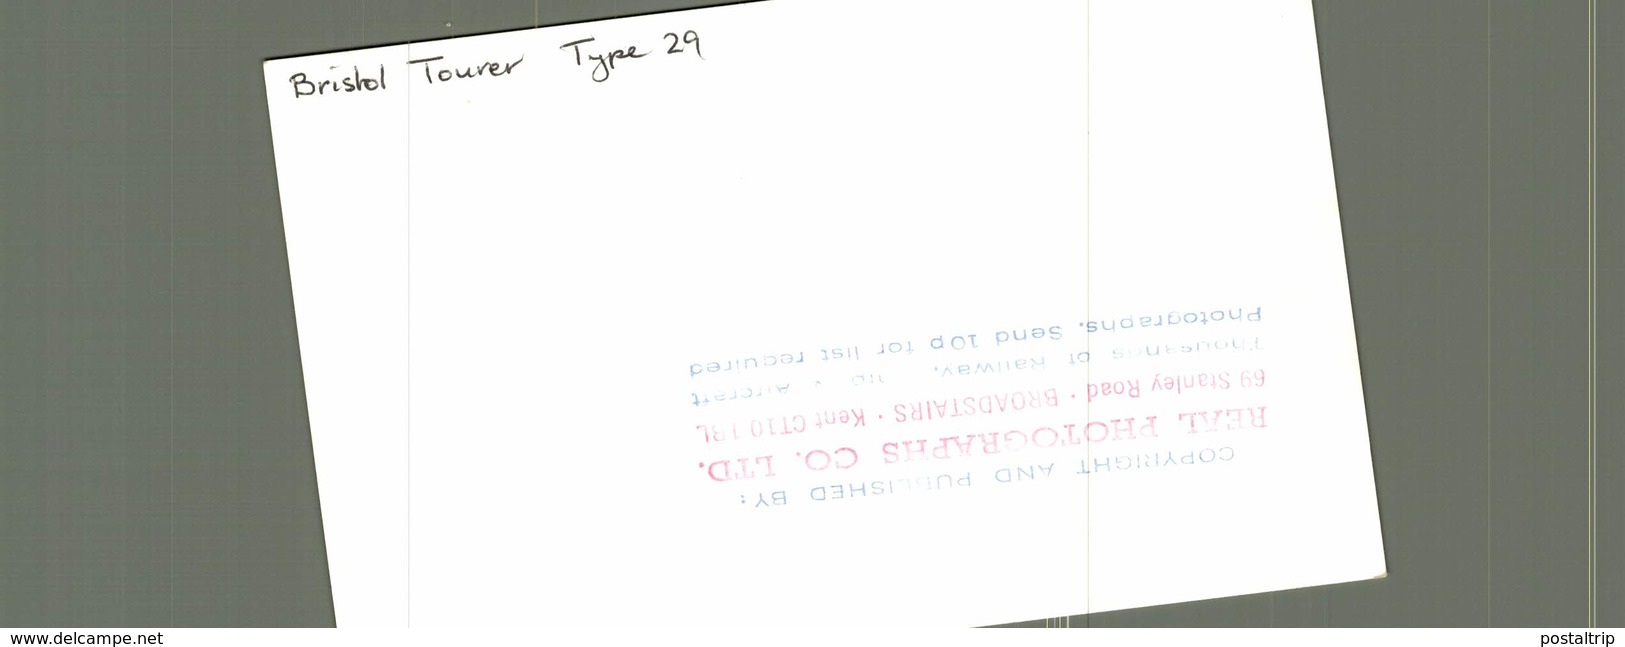 Bristol Tourer Type 29
COPYRIGHT AND PUBLISHED BY:
REAL PHOTOGRAPHS CO. LTD.
69 Stanley Road · BROADSTAIRS · Kent CT10
Thousands of Railway, Aircraft
Photographs. Send 10p for list required
www.delcampe.net
postaltrip